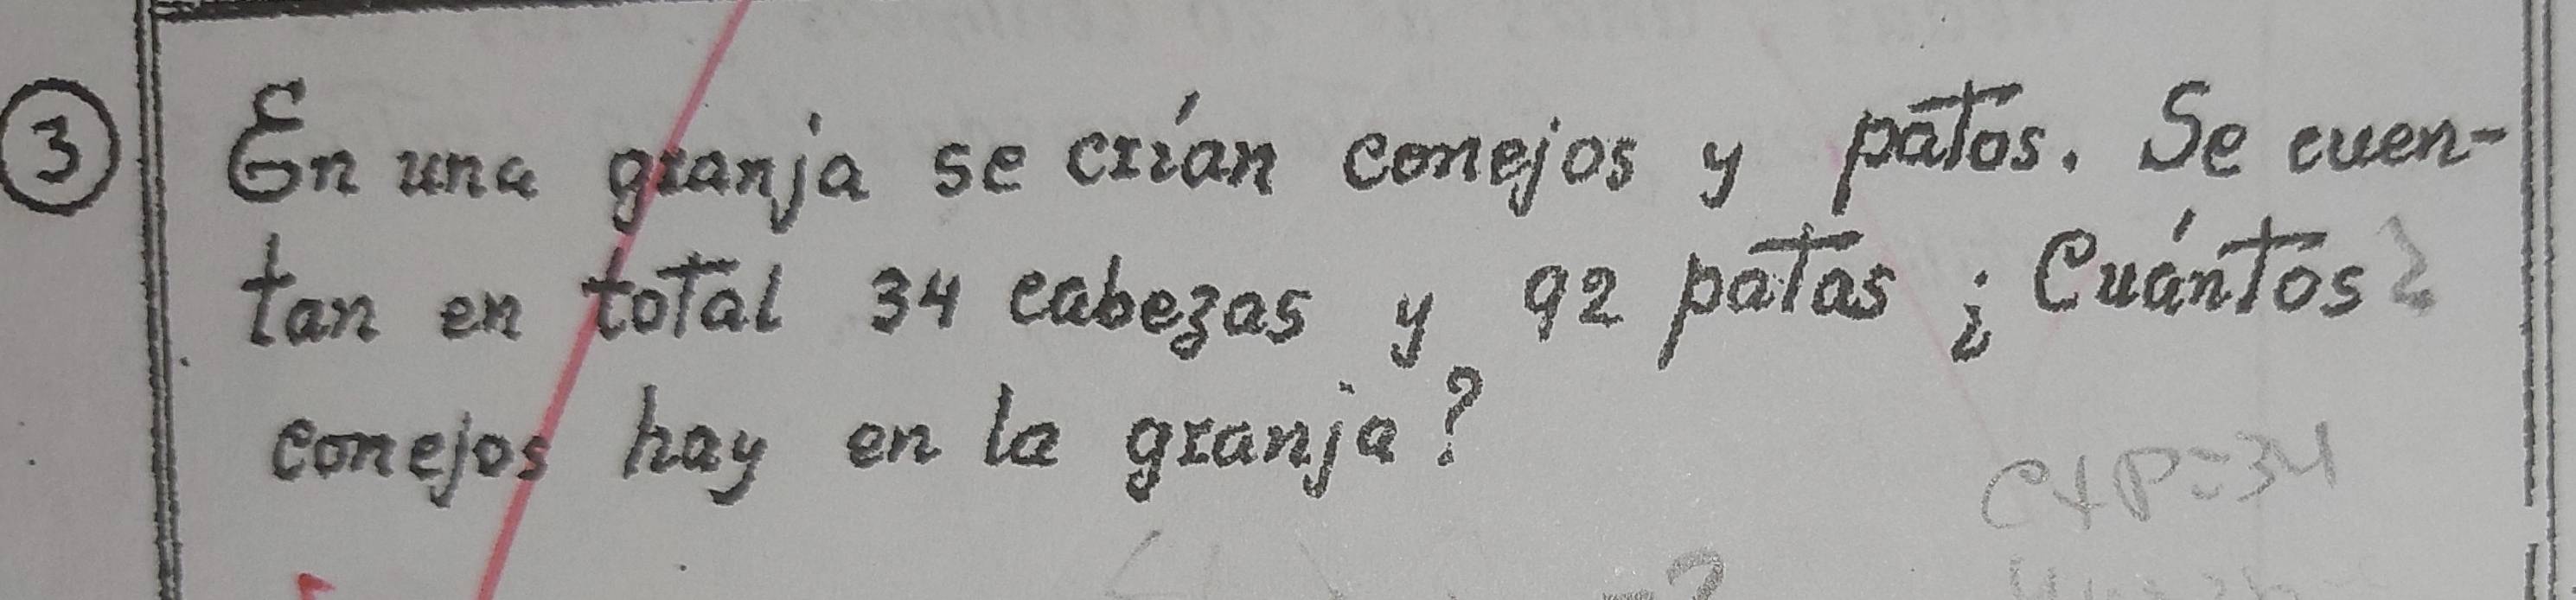 3 En una granja se crían conejos y patos. Se cuen-
tan en total 34 cabezas y 92 patas ¿Cuántos?
conejos hay en la granja?
C+P=34